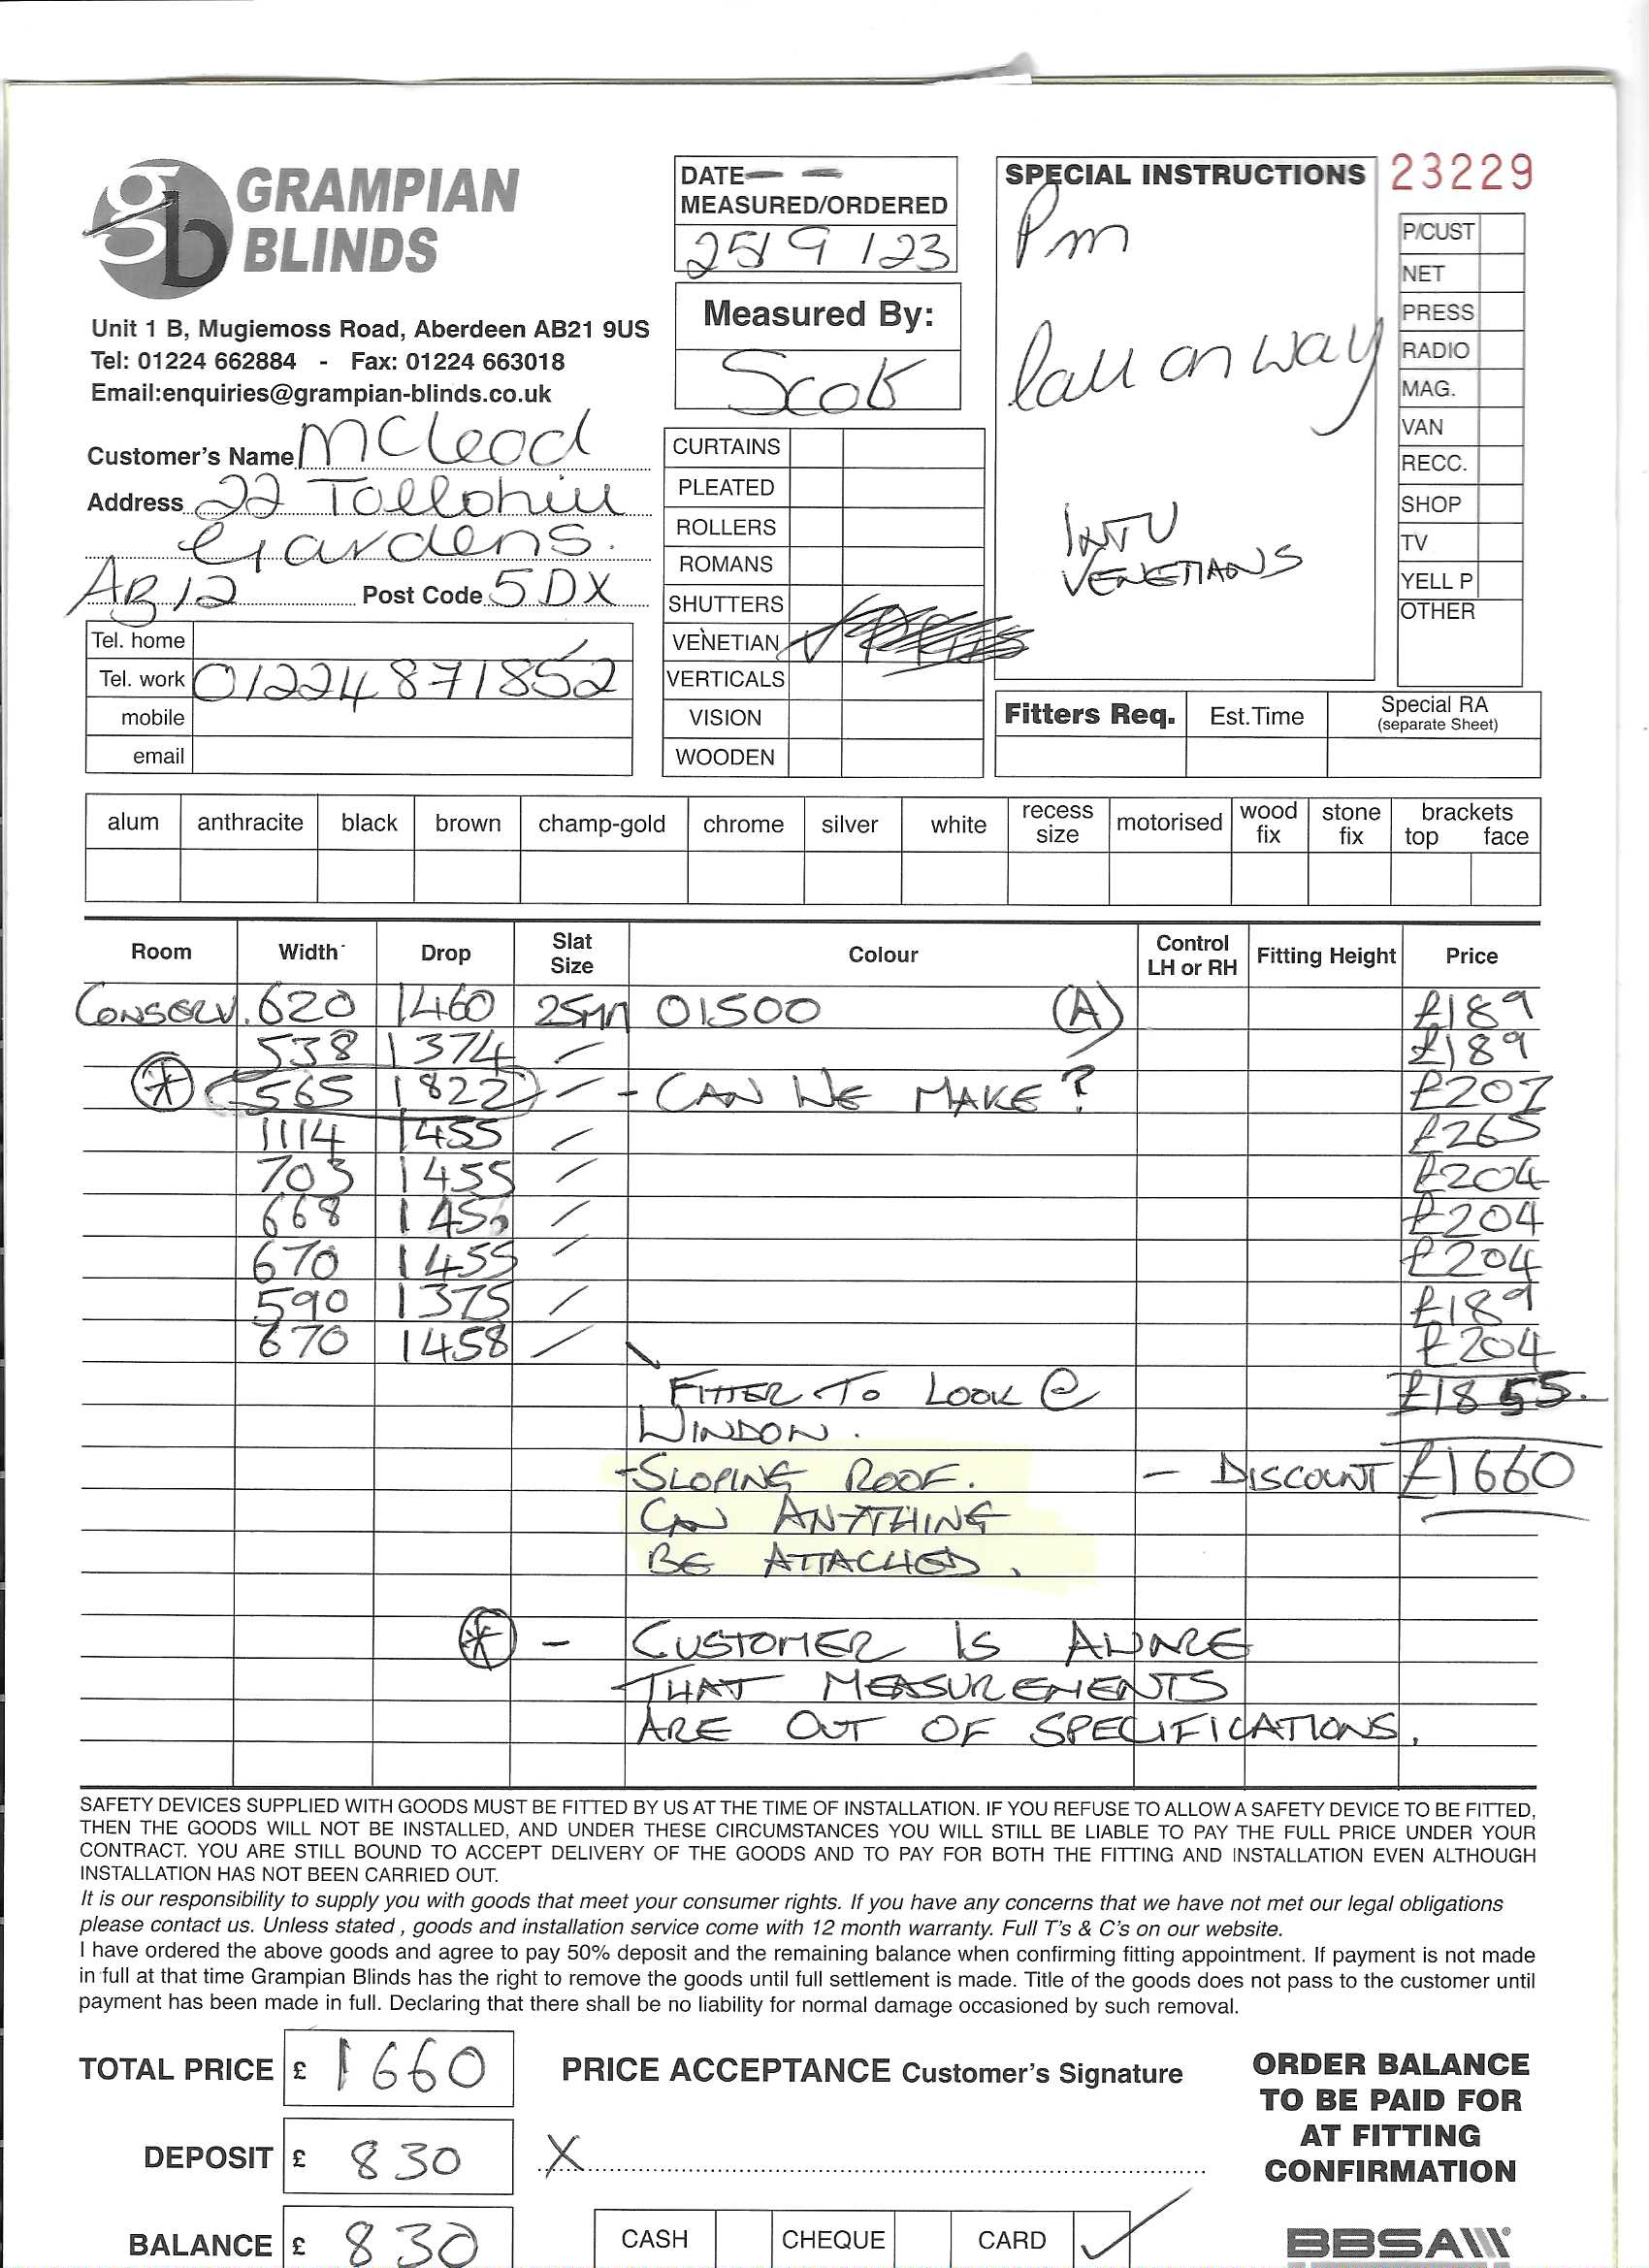 GRAMPIAN
BLINDS
Unit 1 B, Mugiemoss Road, Aberdeen AB21 9US
Tel: 01224 662884 - Fax: 01224 663018
Email:enquiries@grampian-blinds.co.uk
Customer's Name McLeod
Address 22 Tollohill
Gardens.
AB12 Post Code 5DX
Tel. home
Tel. work 01224 871852
mobile
email
DATE
MEASURED/ORDERED
25/9/23
Measured By:
Scott
CURTAINS
PLEATED
ROLLERS
ROMANS
SHUTTERS
VENETIAN ✓
VERTICALS
VISION
WOODEN
SPECIAL INSTRUCTIONS
Pm
Call on way
INTU
VENETIANS
23229
P/CUST
NET
PRESS
RADIO
MAG.
VAN
RECC.
SHOP
TV
YELL P
OTHER
Fitters Req. Est.Time Special RA
(separate Sheet)
alum anthracite black brown champ-gold chrome silver white recess size motorised wood fix stone fix brackets top face
Room Width Drop Slat Size Colour Control LH or RH Fitting Height Price
CONSERV. 620 1460 25mm 01500 (A) £189
538 1374 £189
* 565 1822 - CAN WE MAKE? £207
1114 1455 £265
703 1455 £204
668 1450 £204
670 1455 £204
590 1375 £189
670 1458 £204
FITTER TO LOOK @ £1855.
WINDOW.
- SLOPING ROOF. - DISCOUNT £1660
CAN ANYTHING
BE ATTACHED.
* - CUSTOMER IS AWARE
THAT MEASUREMENTS
ARE OUT OF SPECIFICATIONS.
SAFETY DEVICES SUPPLIED WITH GOODS MUST BE FITTED BY US AT THE TIME OF INSTALLATION. IF YOU REFUSE TO ALLOW A SAFETY DEVICE TO BE FITTED,
THEN THE GOODS WILL NOT BE INSTALLED, AND UNDER THESE CIRCUMSTANCES YOU WILL STILL BE LIABLE TO PAY THE FULL PRICE UNDER YOUR
CONTRACT. YOU ARE STILL BOUND TO ACCEPT DELIVERY OF THE GOODS AND TO PAY FOR BOTH THE FITTING AND INSTALLATION EVEN ALTHOUGH
INSTALLATION HAS NOT BEEN CARRIED OUT.
It is our responsibility to supply you with goods that meet your consumer rights. If you have any concerns that we have not met our legal obligations
please contact us. Unless stated , goods and installation service come with 12 month warranty. Full T's & C's on our website.
I have ordered the above goods and agree to pay 50% deposit and the remaining balance when confirming fitting appointment. If payment is not made
in full at that time Grampian Blinds has the right to remove the goods until full settlement is made. Title of the goods does not pass to the customer until
payment has been made in full. Declaring that there shall be no liability for normal damage occasioned by such removal.
TOTAL PRICE £ 1660
DEPOSIT £ 830
BALANCE £ 830
PRICE ACCEPTANCE Customer's Signature
X
CASH CHEQUE CARD ✓
ORDER BALANCE
TO BE PAID FOR
AT FITTING
CONFIRMATION
BBSA